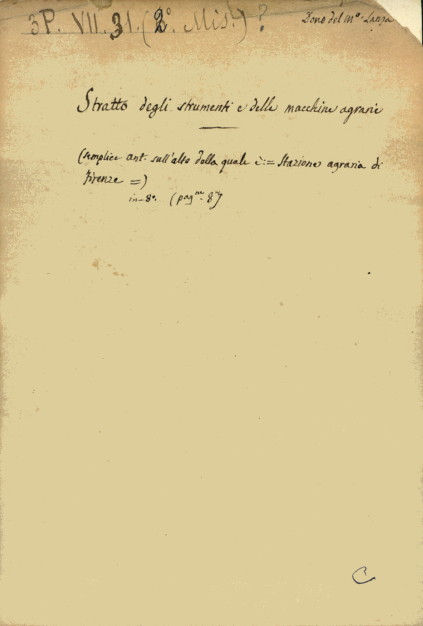 3P. VII. 31. (2° Mis.) ?
Dono del M.º
Stratto degli strumenti e delle macchine agrarie
(semplice ant. sull'alto della quale è:= Stazione agraria di
Firenze =)
in-8º. (pag.ne 87)
C